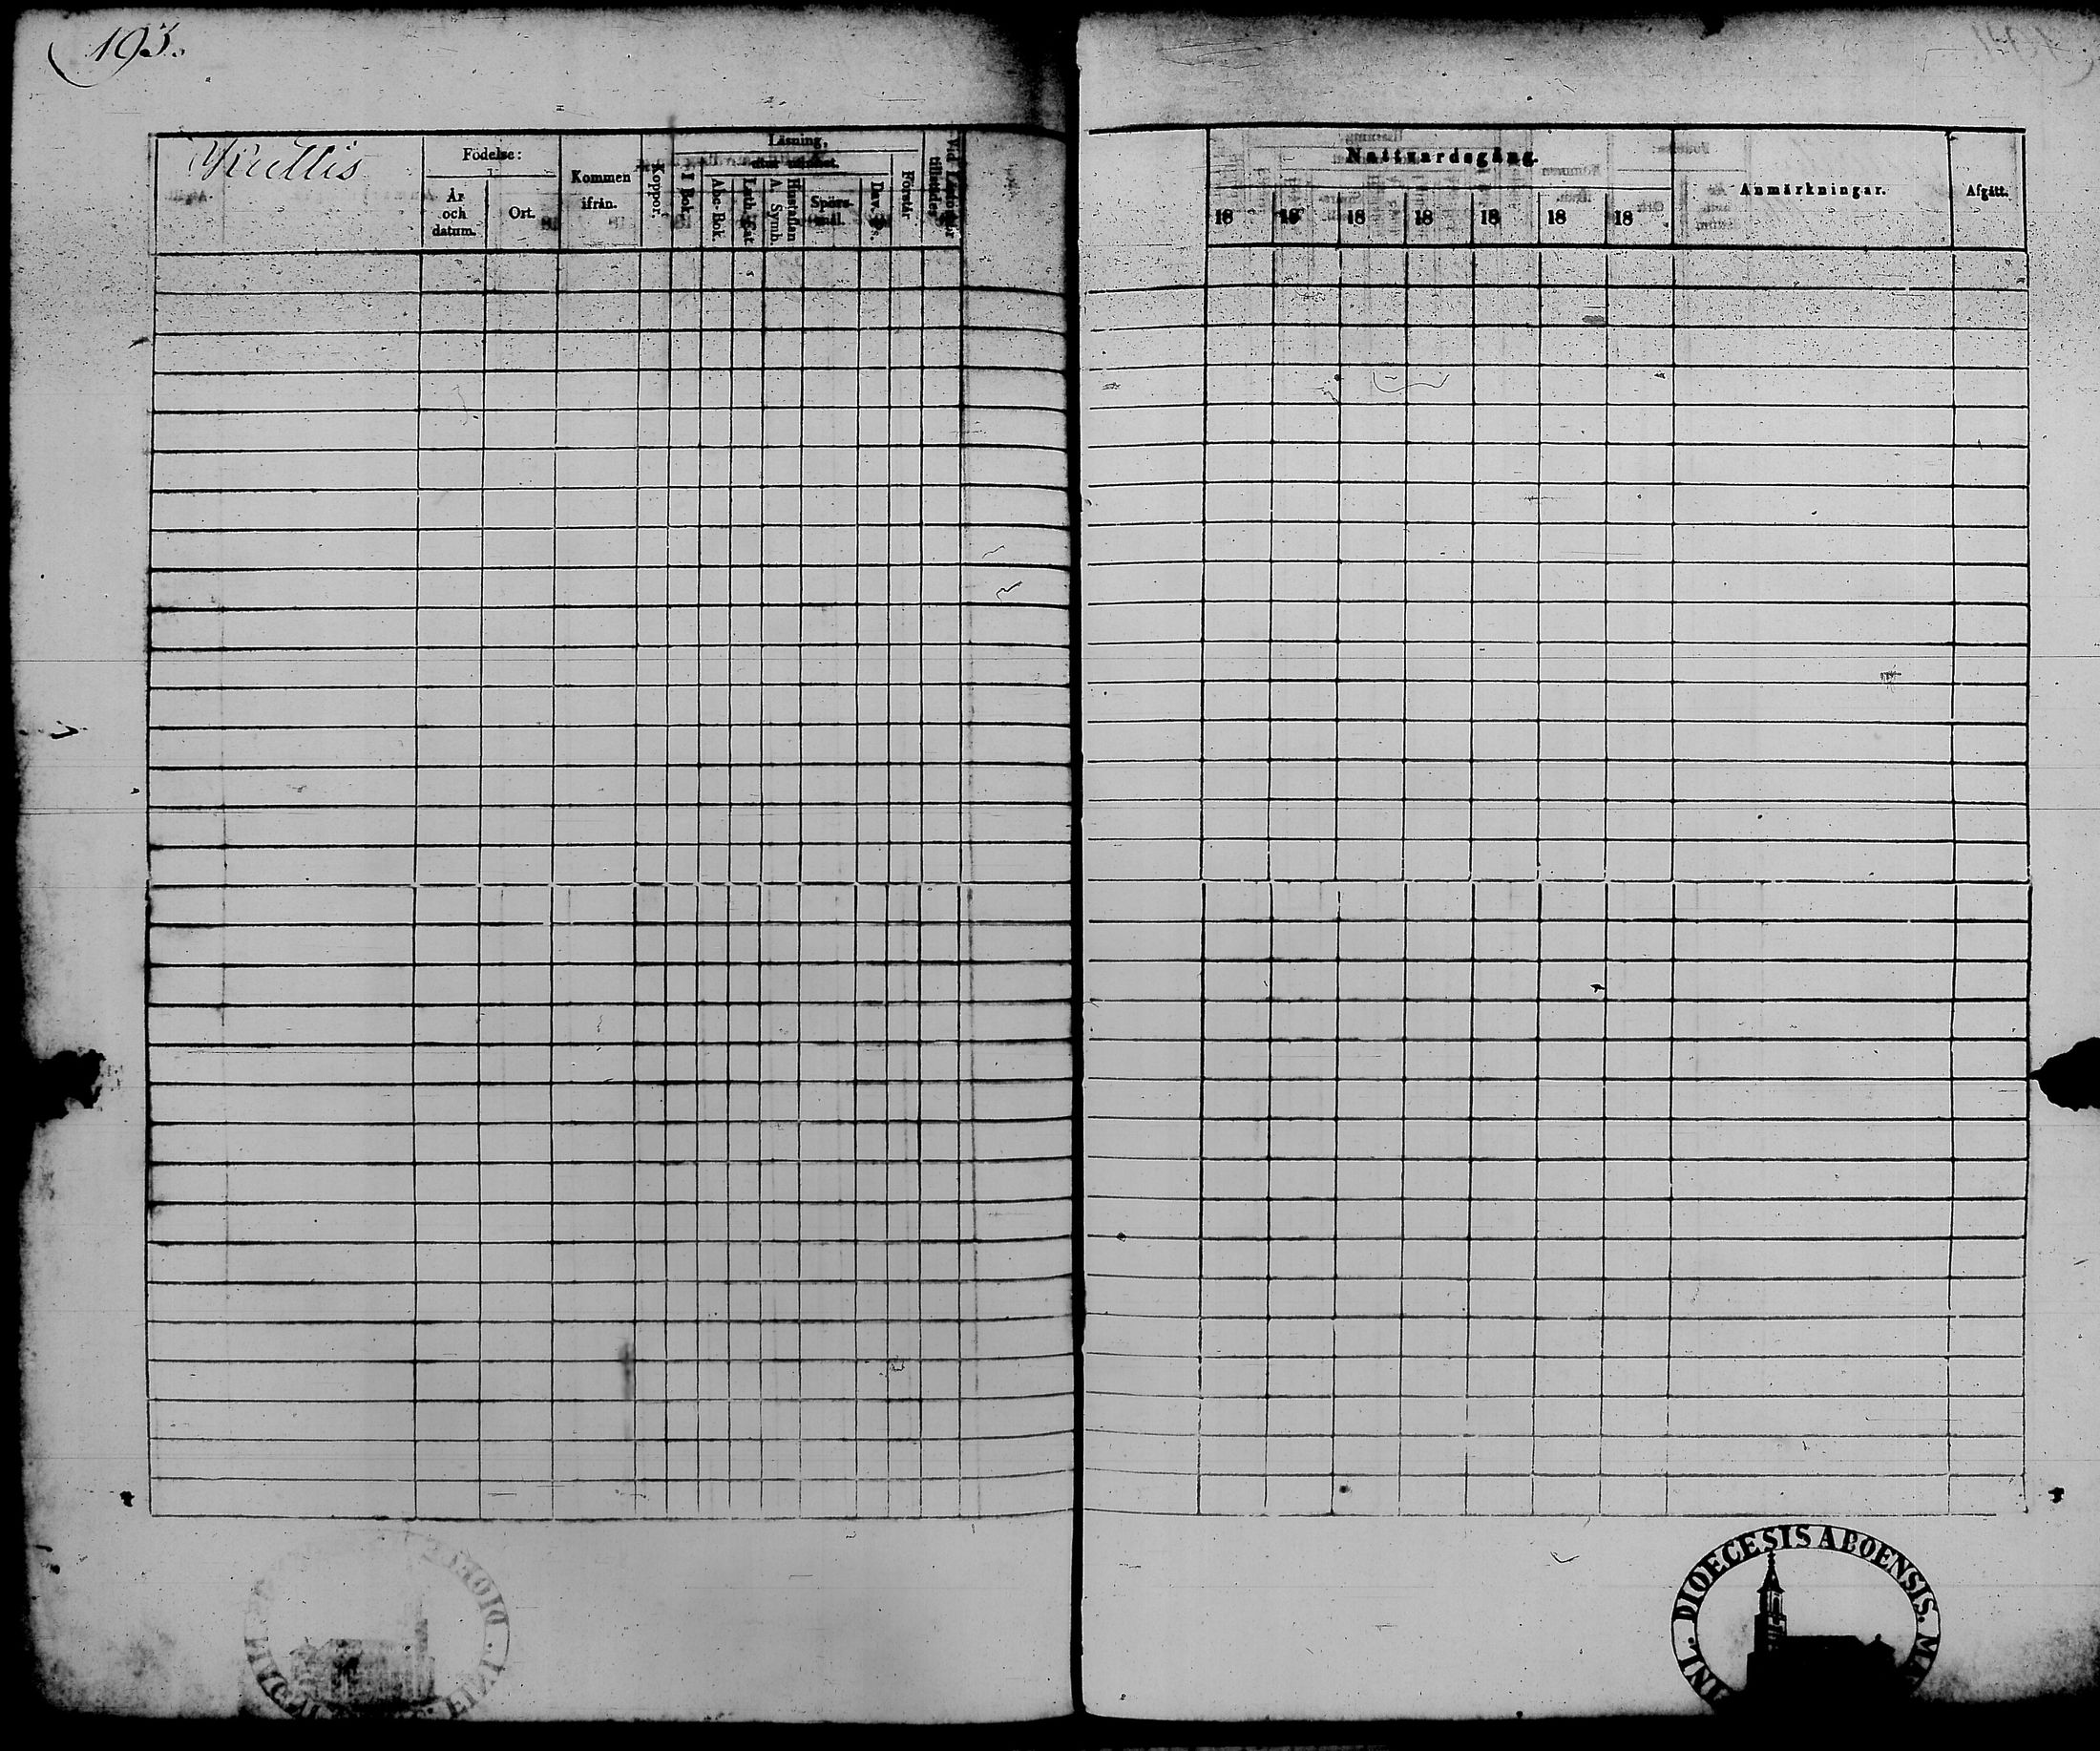 193.
Kullis
Födelse:
År och datum.
Ort.
Kommen ifrån.
Koppor.
Läsning,
I Bok.
efter minnet.
Abc-Bok.
Luth. Cat.
Hustaflan A. Symb.
Spörsmål.
Dav. Ps.
Förstår
Vid Läsförhör tillstädes
Nattvardsgång.
18 18 18 18 18 18 18
Anmärkningar.
Afgått.
DIOECESIS ABOENSIS.